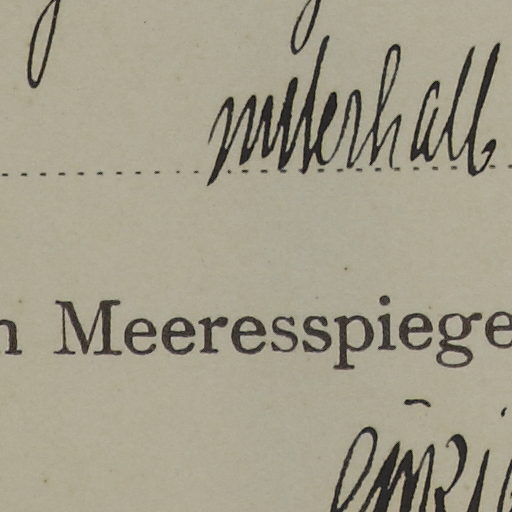 unterhalb
n Meeresspiege